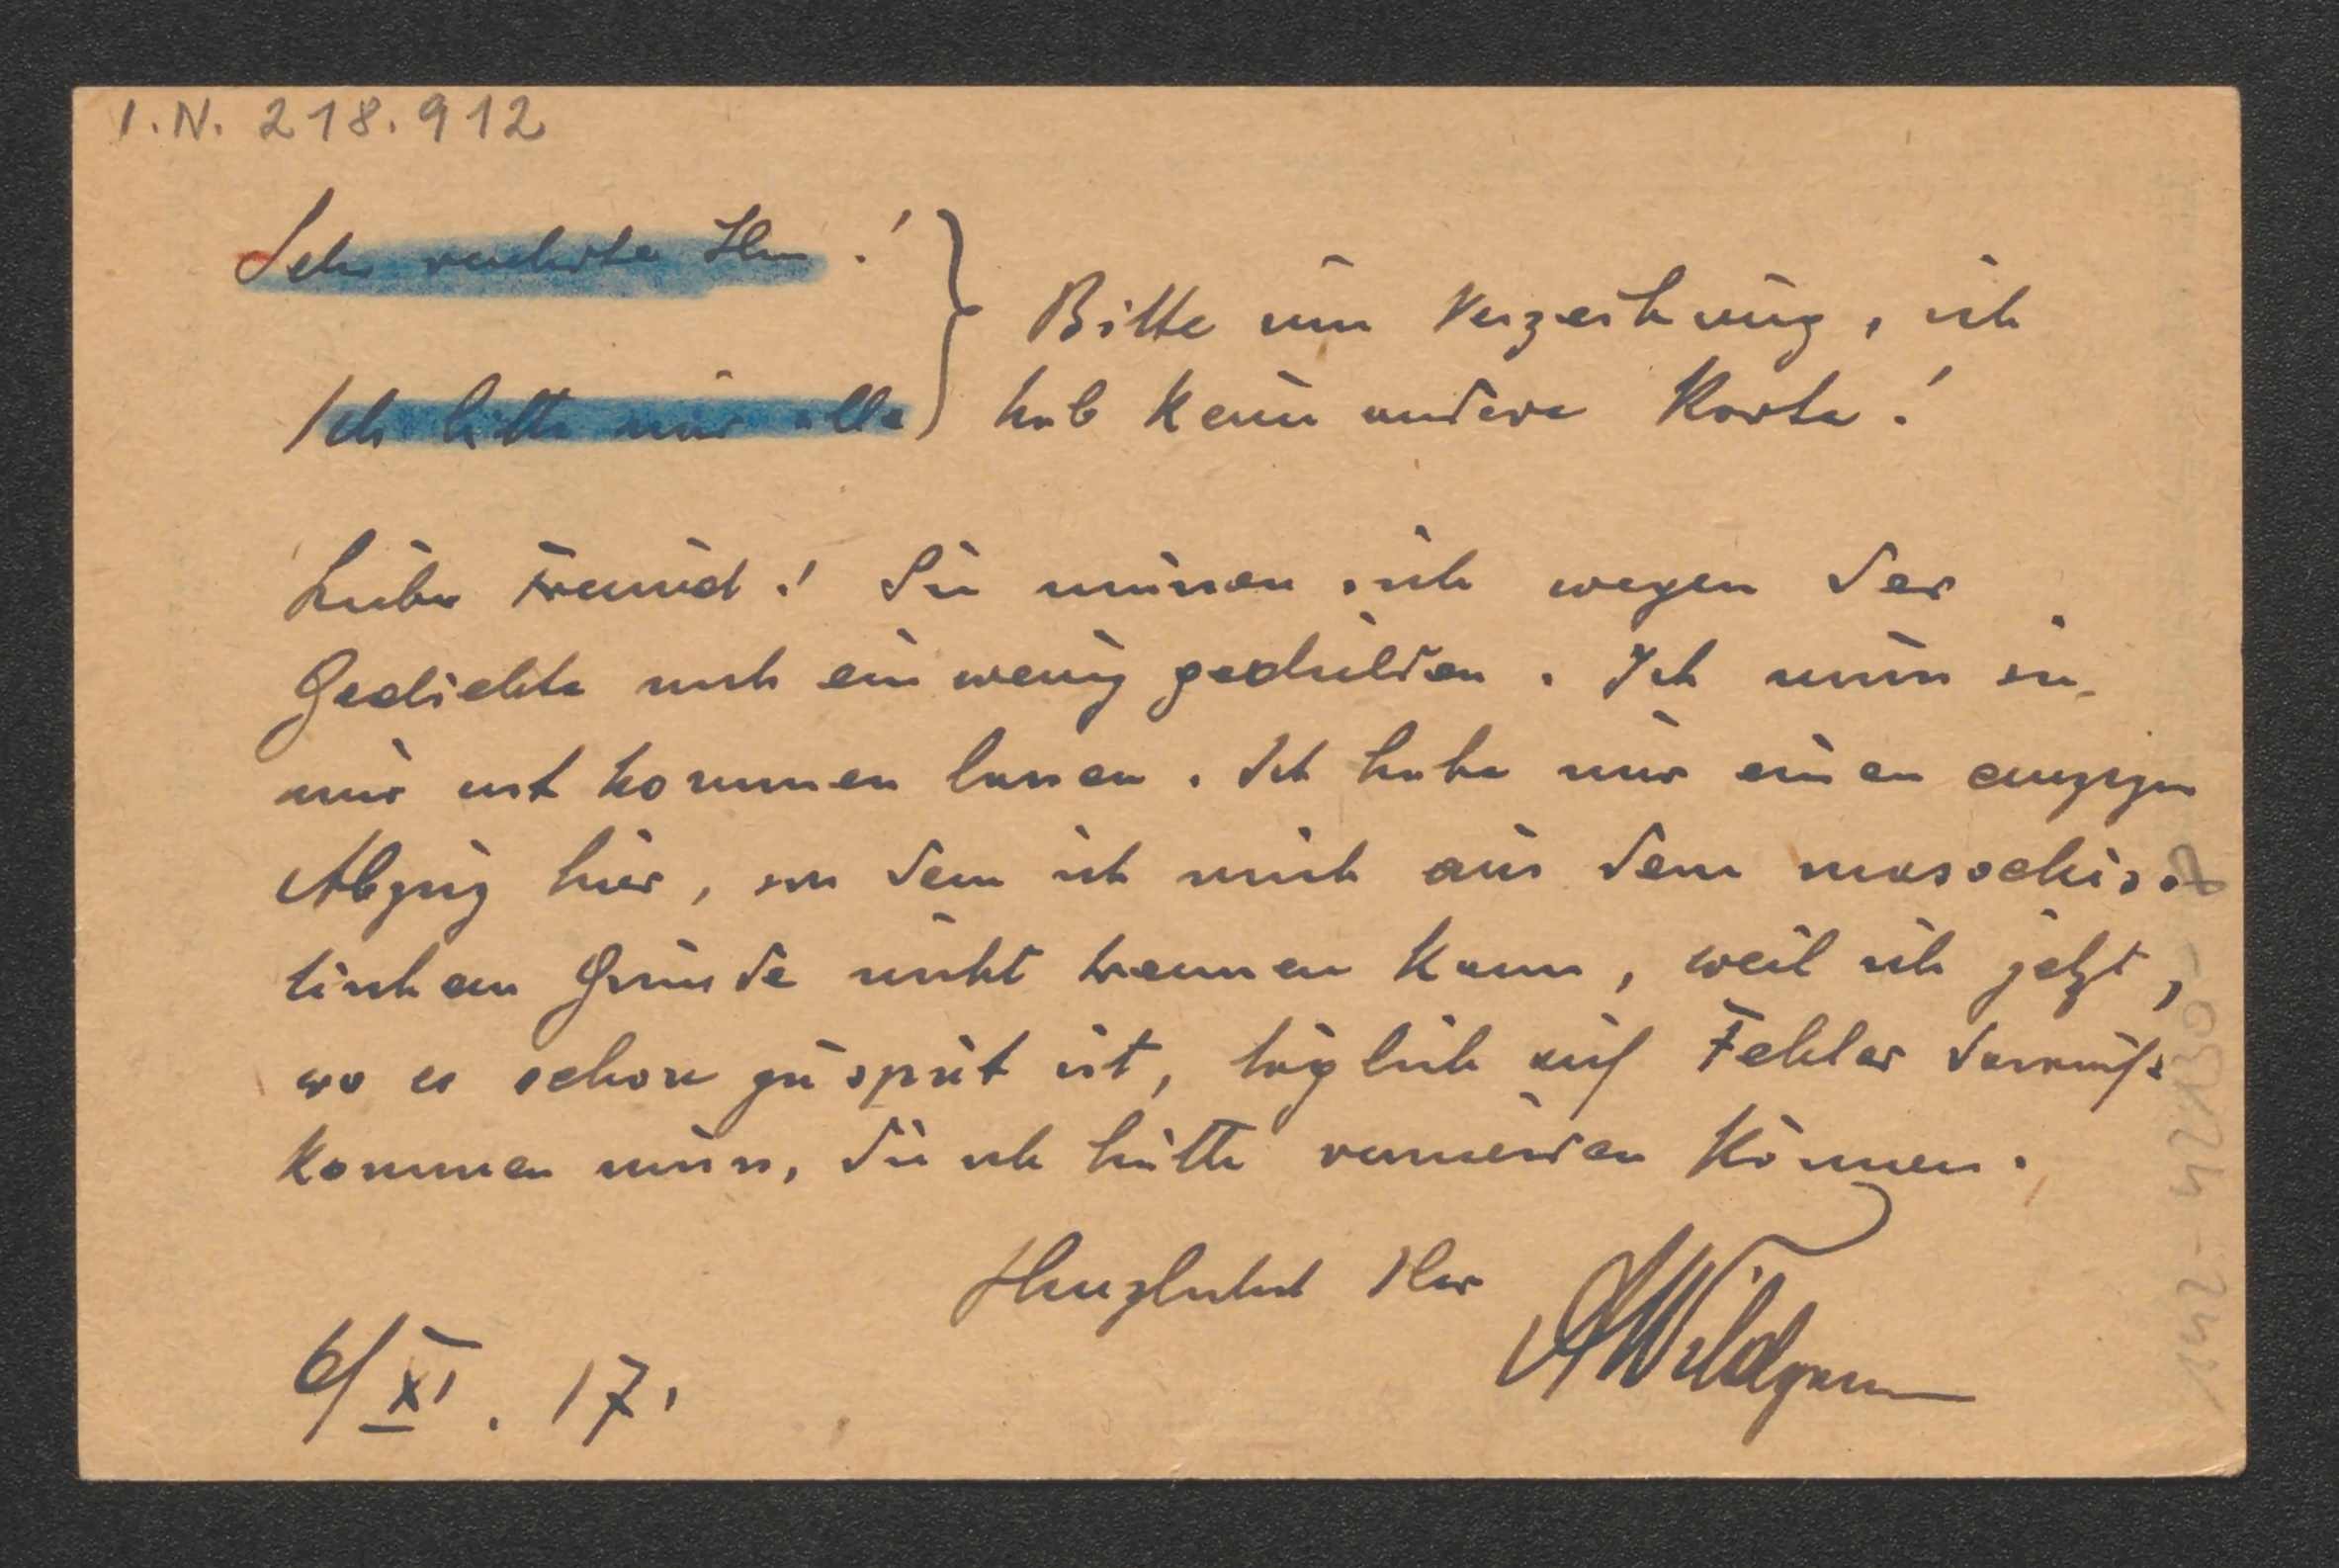 I.N. 218.912
Sehr verehrter Herr!
Ich bitte mir alle
Bitte um Verzeihung, ich
hab kein andere Karte!
Lieber Freund! Sie müssen sich wegen der
Gedichte noch ein wenig gedulden. Ich muss sie
mir erst kommen lassen. Ich habe nur einen einzigen
Abzug hier, von dem ich mich aus dem masochis-
tischen Grunde nicht trennen kann, weil ich jetzt,
wo es schon zu spät ist, täglich auf Fehler darauf
kommen muss, die ich hätte vermeiden können.
Herzlichst Ihr
AWildgans
6/XI. 17.